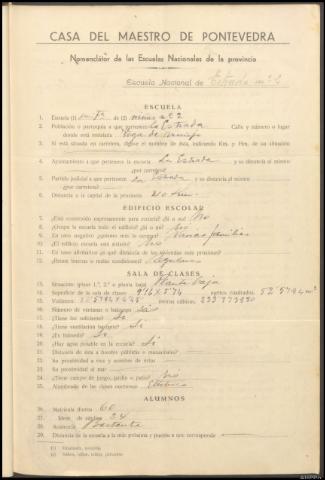 CASA DEL MAESTRO DE PONTEVEDRA
Nomenclátor de las Escuelas Nacionales de la provincia
Escuela Nacional de Estrada nº 2
ESCUELA
1. Escuela (1) de (2) nº 2
2. Población o parroquia a que pertenece La Estrada Calle y número o lugar
donde está instalada
3. Si está situada en carretera, dígase el nombre de ésta, indicando Km. y Hm. de su situación
4. Ayuntamiento a que pertenece la escuela La Estrada y su distancia al mismo
(por carretera)
5. Partido judicial a que pertenece La Estrada y su distancia al mismo
(por carretera)
6. Distancia a la capital de la provincia
EDIFICIO ESCOLAR
7. ¿Está construído expresamente para escuela? (Sí o no) No
8. ¿Ocupa la escuela todo el edificio? (Sí o no) No
9. En caso negativo ¿quienes más lo ocupan? Varias familias
10. ¿El edificio escuela está aislado? No
11. En caso afirmativo ¿a qué distancia de las viviendas más próximas?
12. ¿Reune buenas o malas condiciones? Regulares
SALA DE CLASES
13. Situación (piso 1.º, 2.º o planta baja) Planta baja
14. Superficie de la sala de clases 9'16 x 5'74 metros cuadrados, 52'5784 m²
15. Volumen metros cúbicos,
16. Número de ventanas o balcones
17. ¿Tiene luz suficiente? Sí
18. ¿Tiene ventilación natural? Sí
19. ¿Es húmeda? Sí
20. ¿Hay agua potable en la escuela? Sí
21. Distancia de ésta a fuentes públicas o manantiales
22. Su proximidad a ríos y nombre de éstos
23. Su proximidad al mar
24. ¿Tiene campo de juego, jardín o patio? No
25. Alumbrado de las clases nocturnas Eléctrico
ALUMNOS
26. Matrícula diurna 60
27. Idem. de adultos 24
28. Asistencia Bastante
29. Distancia de la escuela a la más próxima y pueblo a que corresponde